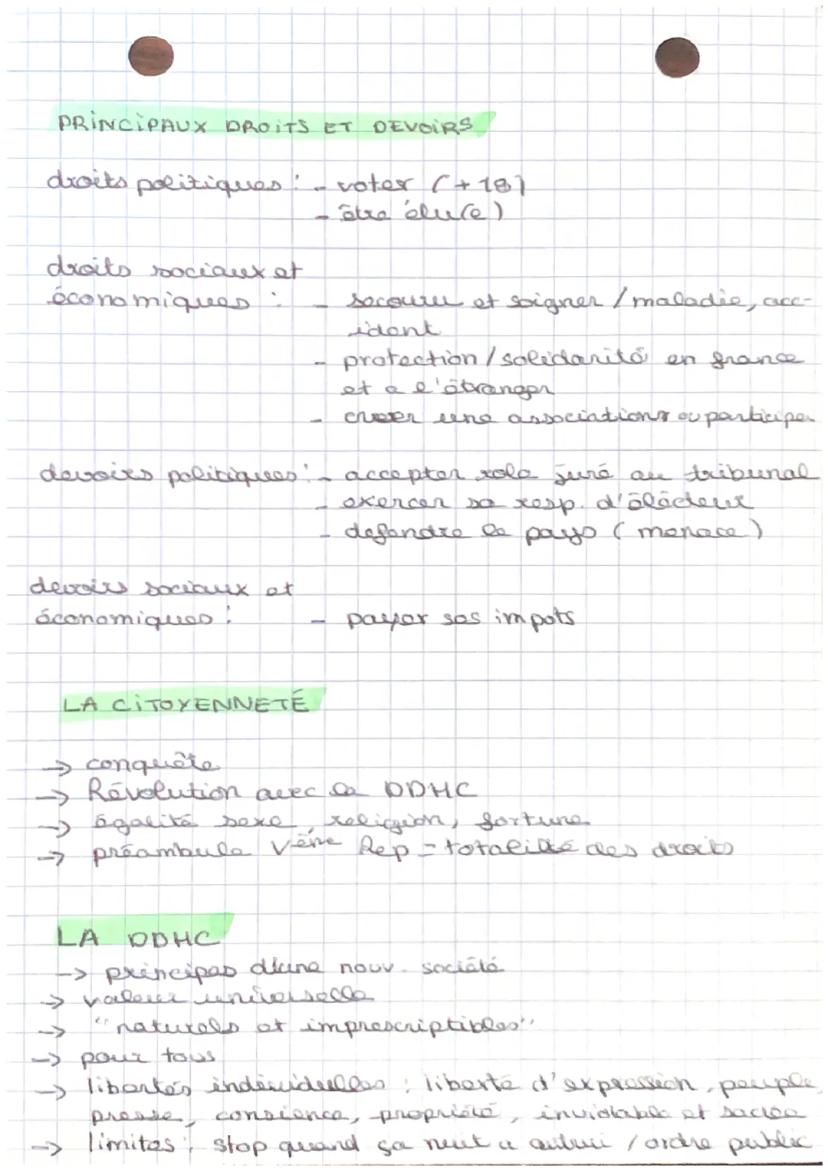 PRINCIPAUX DROITS ET DEVOIRS
droits politiques : - voter (+18)
- être élu(e)
droits sociaux et
économiques : - secouru et soigner / maladie, acc-
ident
- protection / solidarité en france
et a l'étranger
- creer une associations ou participer
devoirs politiques : - accepter role juré au tribunal
- exercer sa resp. d'électeur
- defendre le pays (menace)
devoirs sociaux et
économiques : - payer ses impots
LA CITOYENNETÉ
→ conquête
→ Révolution avec la DDHC
→ égalité sexe, religion, fortune
→ préambule Vème Rep = totalité des droits
LA DDHC
-> principes d'une nouv. société
→ valeur universelle
→ "naturels et imprescriptibles"
→ pour tous
→ libertés individuelles : liberté d'expression, peuple,
presse, consience, propriété, inviolable et sacrée
→ limites : stop quand ça nuit a autrui / ordre public